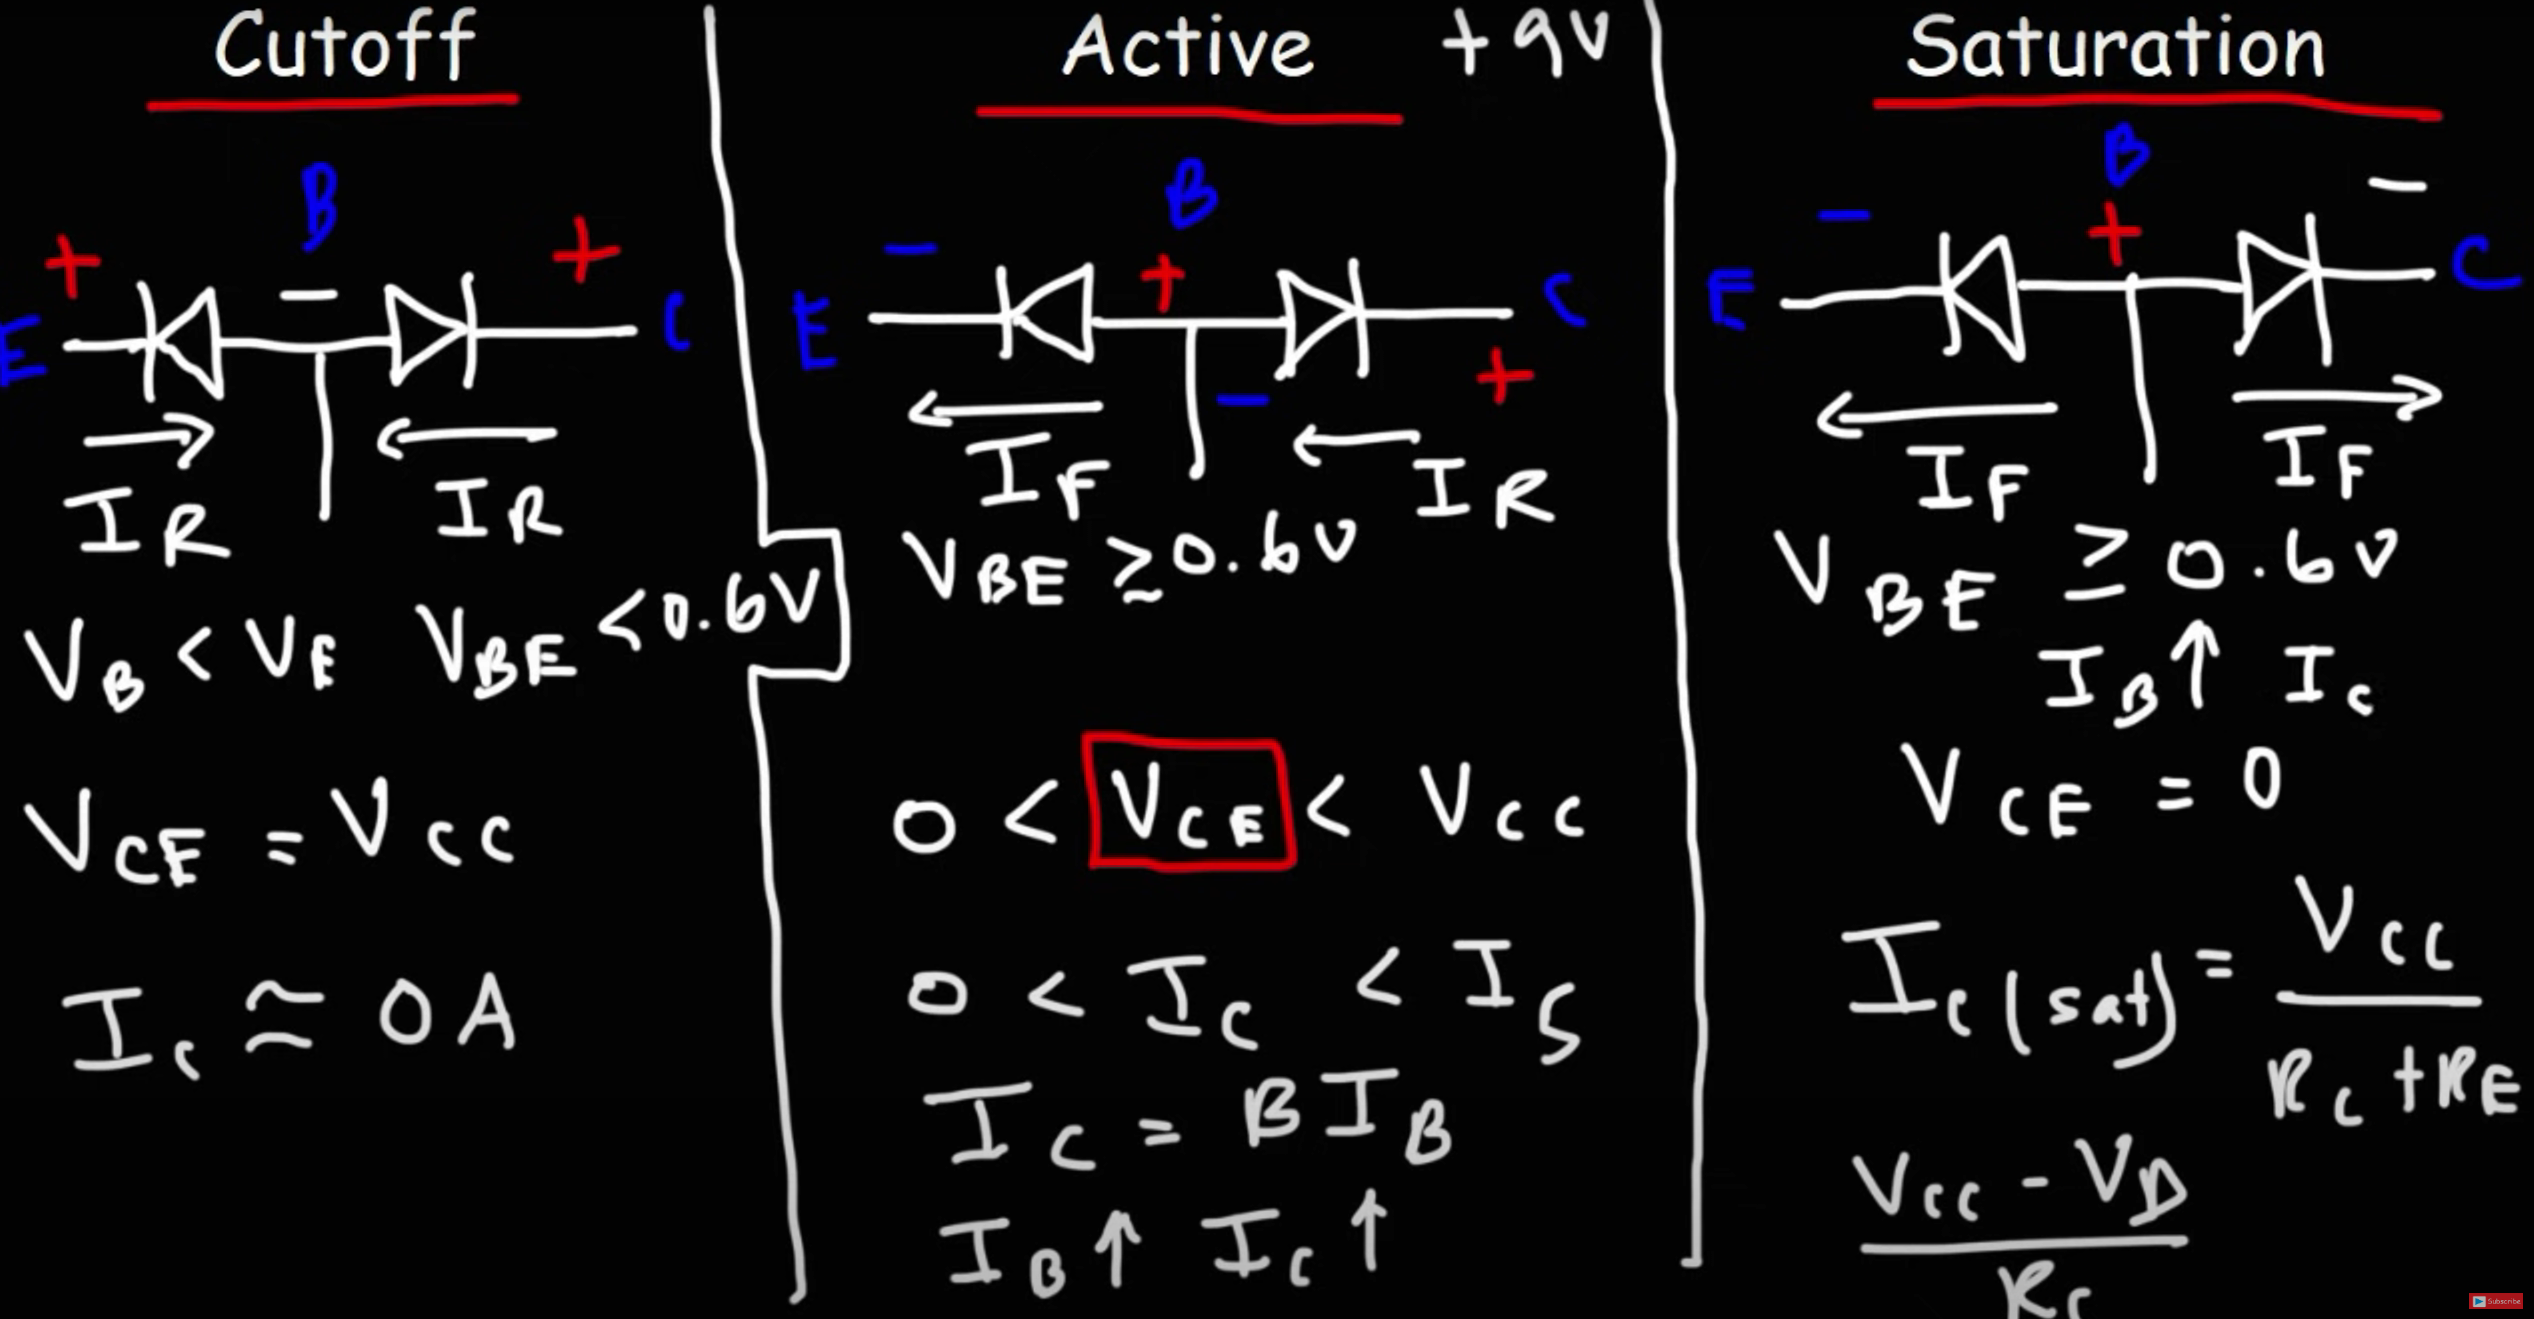 Cutoff
B
+ − +
E C
I_R I_R
V_B < V_E V_BE < 0.6V
V_CE = V_CC
I_C ≈ 0 A
Active +9V
B
− +
E C
− +
I_F I_R
V_BE ≥ 0.6V
0 < V_CE < V_CC
0 < I_C < I_S
I_C = B I_B
I_B ↑ I_C ↑
Saturation
B
− + −
E C
I_F I_F
V_BE ≥ 0.6V
I_B ↑ I_C
V_CE = 0
I_C(sat) = V_CC / R_C + R_E
V_CC - V_D
R_C
Subscribe